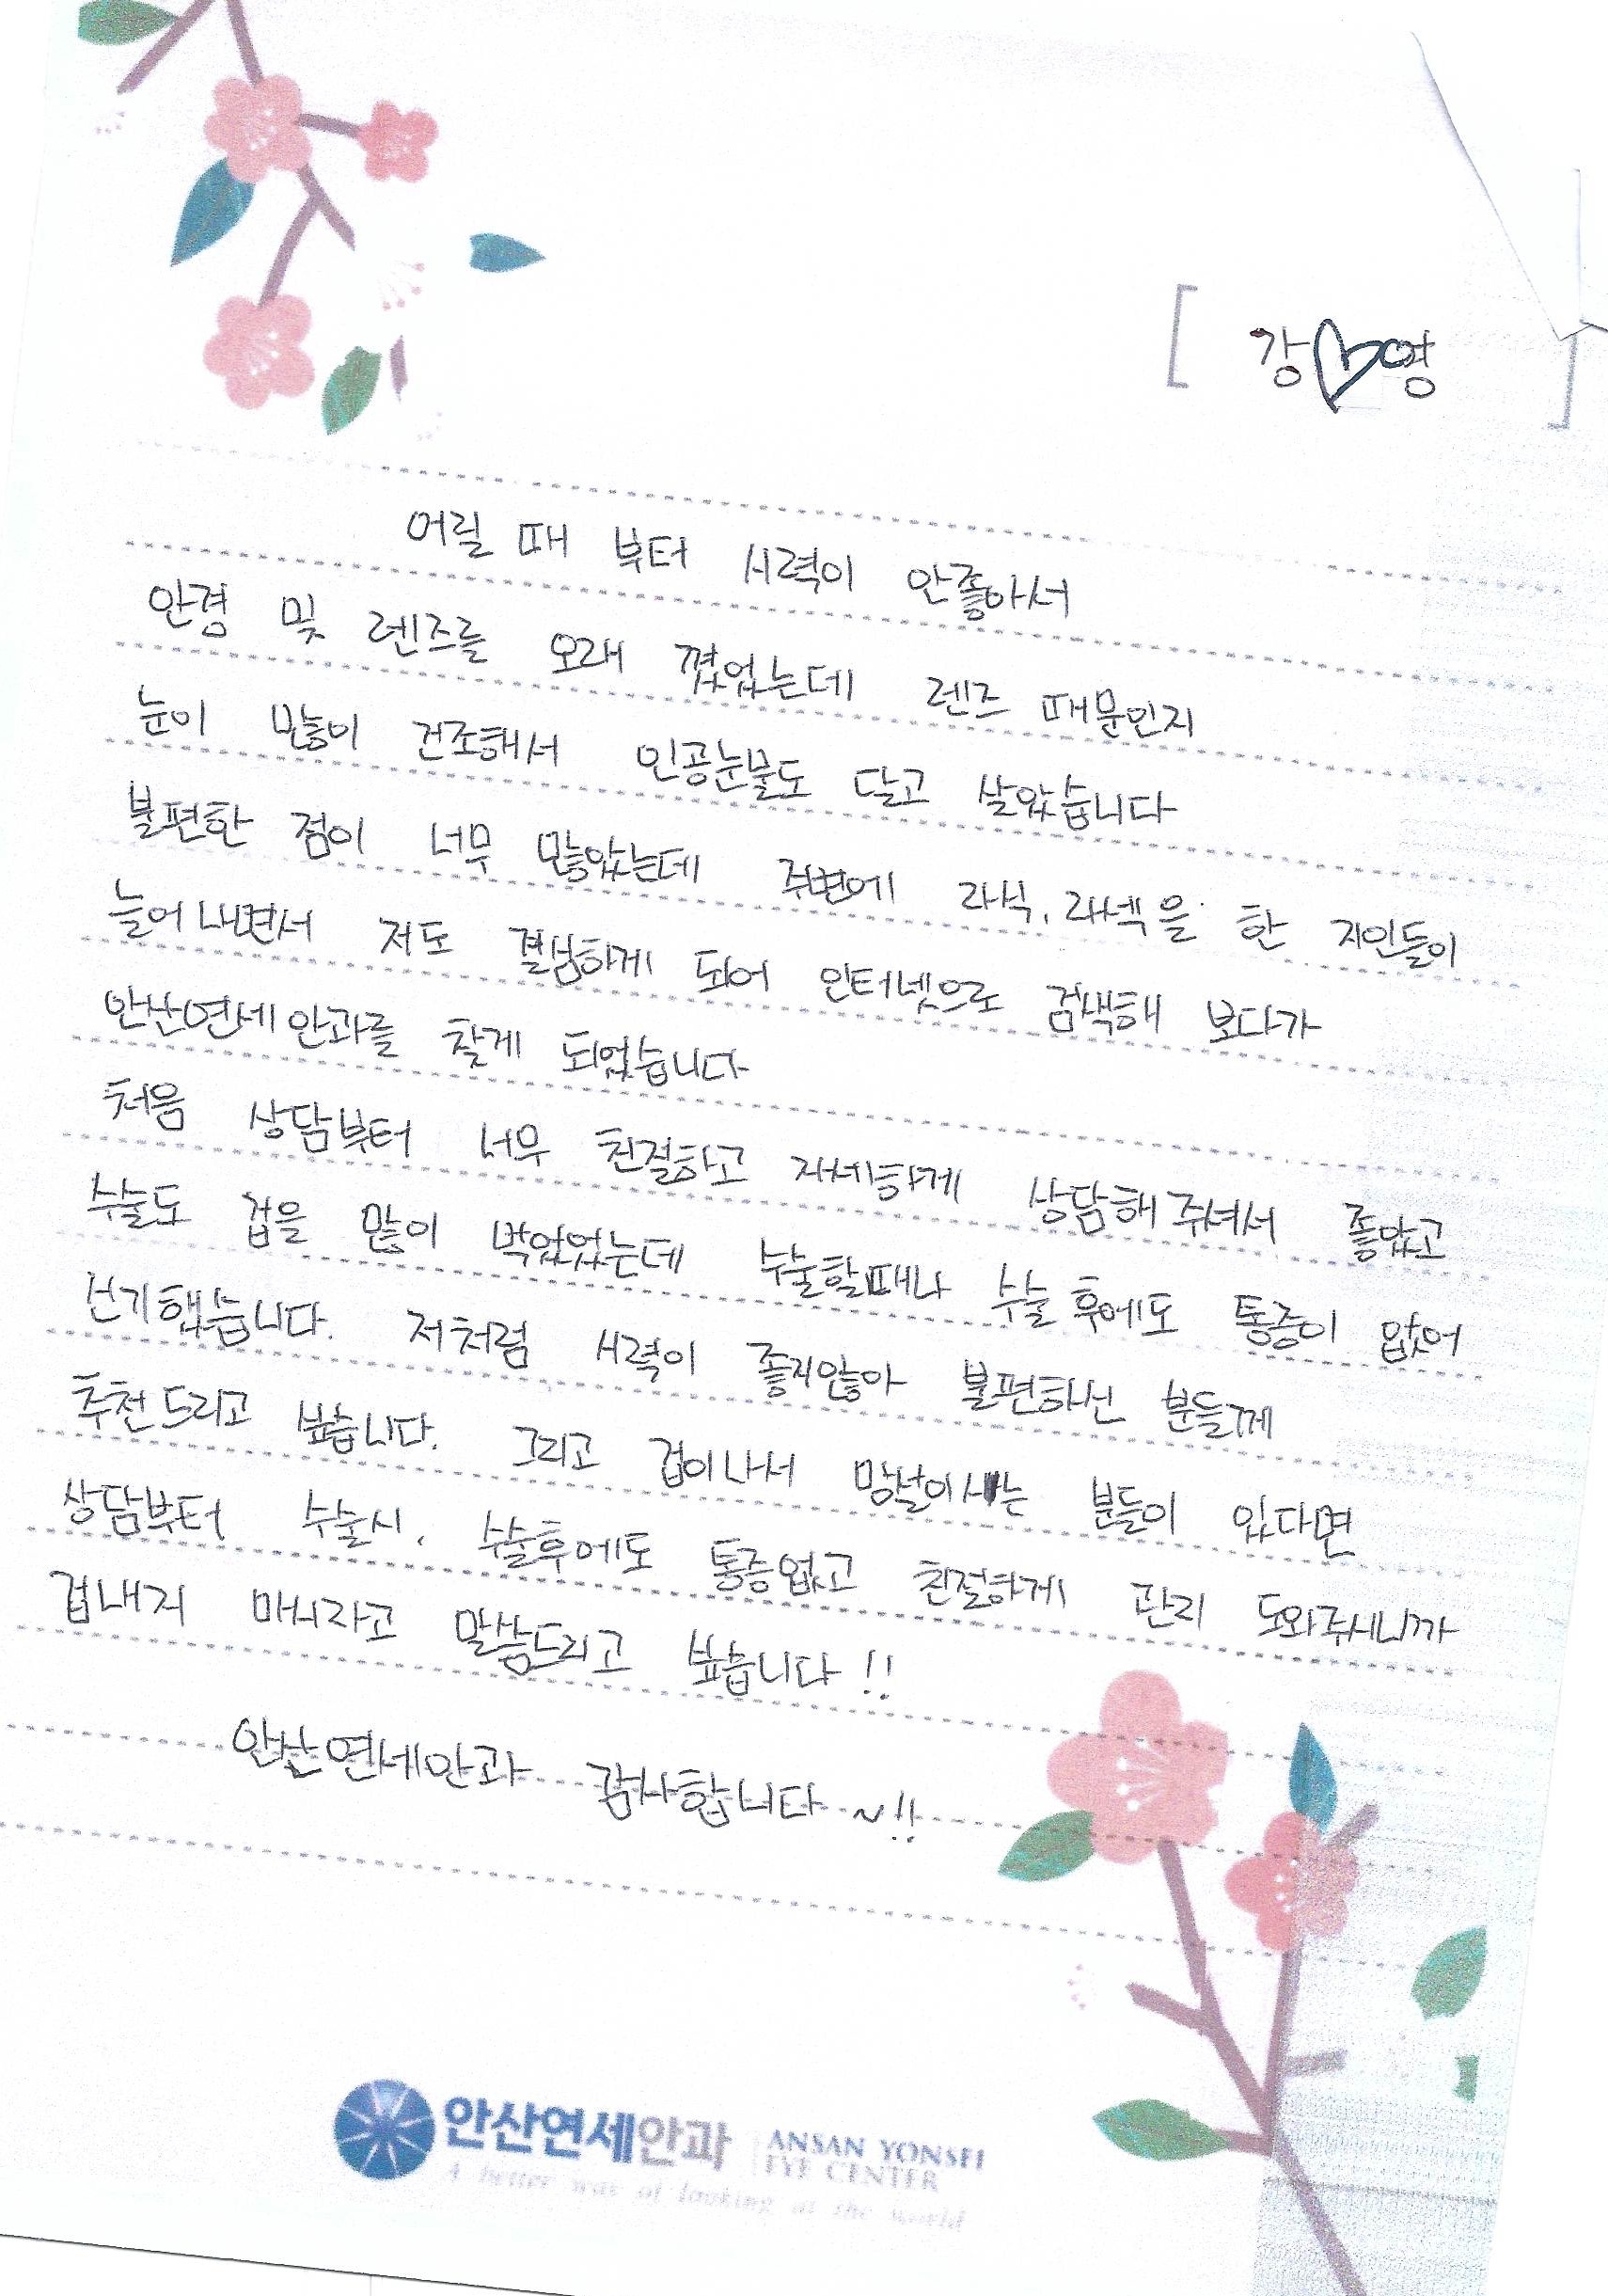 [ 강♡영 ]
어릴 때 부터 시력이 안좋아서
안경 및 렌즈를 오래 꼈었는데 렌즈 때문인지
눈이 많이 건조해서 인공눈물도 달고 살았습니다
불편한 점이 너무 많았는데 주변에 라식, 라섹을 한 지인들이
늘어나면서 저도 결심하게 되어 인터넷으로 검색해 보다가
안산연세안과를 찾게 되었습니다
처음 상담부터 너무 친절하고 자세하게 상담해주셔서 좋았고
수술도 겁을 많이 먹었었는데 수술할때나 수술 후에도 통증이 없어
신기했습니다. 저처럼 시력이 좋지않아 불편하신 분들께
추천드리고 싶습니다. 그리고 겁이나서 망설이시는 분들이 있다면
상담부터 수술시, 수술후에도 통증없고 친절하게 관리 도와주시니까
겁내지 마시라고 말씀드리고 싶습니다!!
안산연세안과 감사합니다~!!
안산연세안과 ANSAN YONSEI
EYE CENTER
A better way of looking at the world